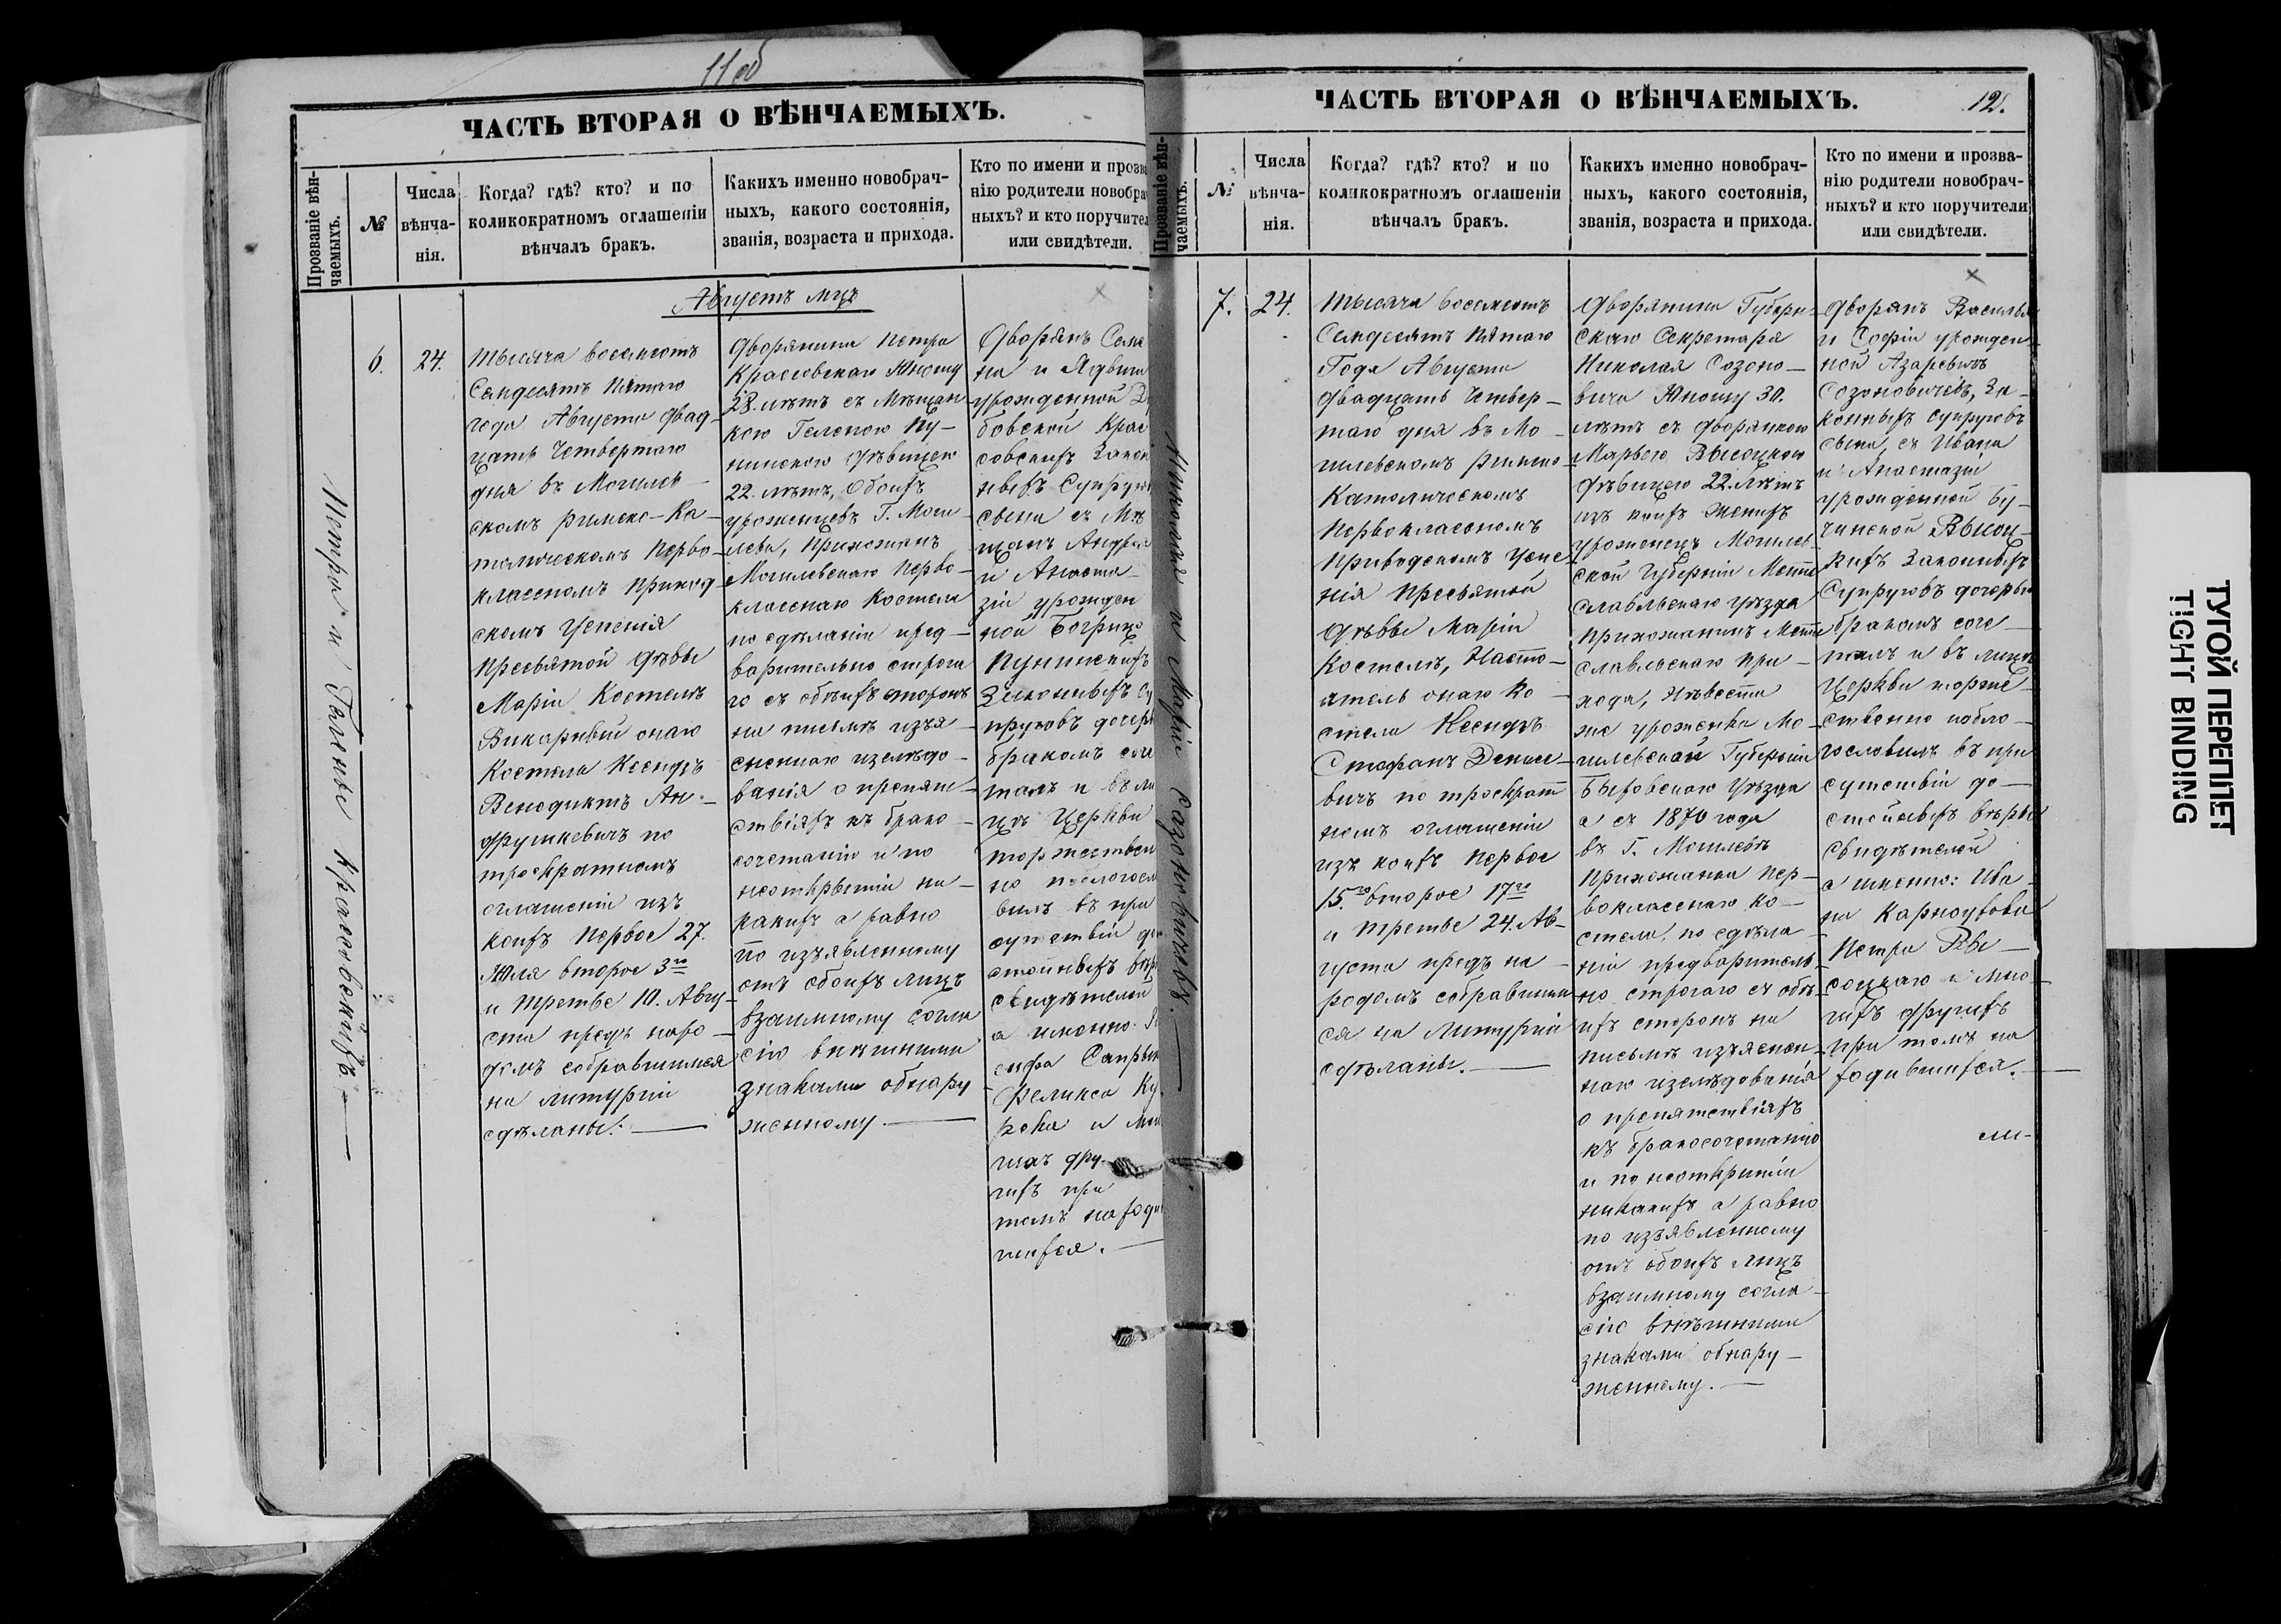 11 об
ЧАСТЬ ВТОРАЯ О ВѢНЧАЕМЫХЪ.
Прозваніе вѣн-
чаемыхъ.
№
Числа
вѣнча-
нія.
Когда? гдѣ? кто? и по
коликократномъ оглашеніи
вѣнчалъ бракъ.
Какихъ именно новобрач-
ныхъ, какого состоянія,
званія, возраста и прихода.
Кто по имени и прозва
нію родители новобра
ныхъ? и кто поручител
или свидѣтели.
Августъ мцъ
Петра и Гелены Красовскихъ.
6.
24.
Тысяча восемсотъ
Семдесятъ Пятаго
года Августа двад-
цать Четвертаго
дня въ Могилев-
скомъ римско-Ка-
толическомъ Перво-
классномъ Приход-
скомъ Успенія
Пресвятой Дѣвы
Маріи Костелѣ
Викарный онаго
Костела Ксендзъ
Венедиктъ Ан-
друшкевичъ по
троекратномъ
оглашеніи изъ
коихъ Первое 27.
Юля второе 3го
и Третье 10. Авгу-
ста предъ наро-
домъ собравшимся
на литургіи
сдѣланы.
Дворянина Петра
Красовскаго Юношу
28. лѣтъ съ Мѣщан-
кою Геленою Пу-
нинскою Дѣвицею
22. лѣтъ, Обоихъ
уроженцевъ Г. Моги-
лева, Прихожанъ
Могилевскаго Перво-
класснаго Костела
по сдѣланіи пред-
варительно строга
го съ обѣихъ сторонъ
на письмѣ изъя-
сненнаго изслѣдо-
ванія о препят-
ствіяхъ къ брако-
сочетанію и по
неоткрытіи ни-
какихъ а равно
по изъявленному
отъ обоихъ лицъ
взаимному согла
сію внѣшними
знаками обнару
женному.
Дворянъ Семе
на и Ядвиги
урожденной
бовской Крас
совскихъ Закон
ныхъ Супруго
сына съ Мѣ
щанъ Андрея
и Анаста-
зіи урожден
ной Богрицо
Пунинскихъ
Законныхъ Су
пруговъ дочерь
бракомъ соче
талъ и въ ли
цѣ Церкви
торжествен
но поблагосл
вилъ въ при
сутствіи до
стойныхъ вѣр
свидѣтелей
а именно:
сифа Сапры
Феликса Ку
рока и мно
гихъ дру-
гихъ при
томъ находи
шихся.
ЧАСТЬ ВТОРАЯ О ВѢНЧАЕМЫХЪ.
12.
Прозваніе вѣн-
чаемыхъ.
№
Числа
вѣнча-
нія.
Когда? гдѣ? кто? и по
коликократномъ оглашеніи
вѣнчалъ бракъ.
Какихъ именно новобрач-
ныхъ, какого состоянія,
званія, возраста и прихода.
Кто по имени и прозва-
нію родители новобрач-
ныхъ? и кто поручители
или свидѣтели.
Николая и Маріи Созоновичевъ.
7.
24.
Тысяча восемсотъ
Семдесятъ Пятаго
Года Августа
двадцать Четвер-
таго дня въ Мо-
гилевскомъ римско-
Католическомъ
Первоклассномъ
Приходскомъ Успе-
нія Пресвятой
Дѣвы Маріи
Костелѣ, Насто-
ятель онаго Ко-
стела Ксендзъ
Стефанъ Денисе-
вичъ по троекрат
номъ оглашеніи
изъ коихъ Первое
15.го второе 17го
и Третье 24. Ав-
густа предъ на-
родомъ собравшим
ся на Литургіи
сдѣланы.
Дворянина Губерн-
скаго Секретаря
Николая Созоно-
вича Юношу 30.
лѣтъ съ дворянкою
Марьею Высоцкою
Дѣвицею 22. лѣтъ
изъ коихъ Женихъ
уроженецъ Могилев-
ской Губерніи Мсти
славльскаго Уѣзда
прихожанинъ Мсти
славльскаго При-
хода, Невѣста
же уроженка Мо-
гилевской Губерніи
Быховскаго Уѣзда
а съ 1870 года
въ Г. Могилевѣ
прихожанка Пер-
вокласснаго Ко-
стела, по сдѣла-
ніи предваритель-
но строгаго съ обѣ-
ихъ сторонъ на
письмѣ изъяснен-
наго изслѣдованія
о препятствіяхъ
къ бракосочетанію
и по неоткрытіи
никакихъ а равно
по изъявленному
отъ обоихъ лицъ
взаимному согла-
сію внѣшними
знаками обнару-
женному.
Дворянъ Василья
и Софіи урожден-
ной Азаревичъ
Созоновичевъ, За-
конныхъ супруговъ
сына, съ Ивана
и Анастазіи
урожденной Бу-
чинской Высоц-
кихъ Законныхъ
Супруговъ дочерью
бракомъ соче-
талъ и въ лицѣ
Церкви торже-
ственно побла-
гословилъ въ при
сутствіи до-
стойныхъ вѣры
свидѣтелей
а именно: Ива-
на Карноухова
Петра Вы-
соцкаго и мно-
гихъ другихъ
при томъ на
ходившихся.
ТУГОЙ ПЕРЕПЛЕТ
TIGHT BINDING